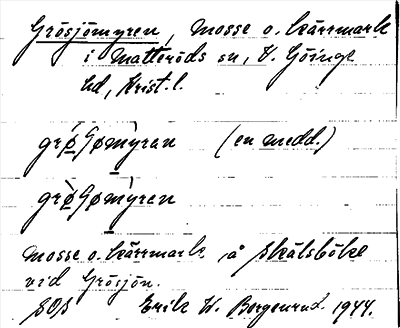 Grösjömyren, Mosse o. kärrmark
i Matteröds sn, V. Göinge
hd, Krist. l.
grø̀ʃømy̵ran (en medd.)
grø̀ʃømy̵ren
Mosse o. kärrmark å Skälsböke
vid Grösjön.
SOS Erik W. Borgenrud. 1944.